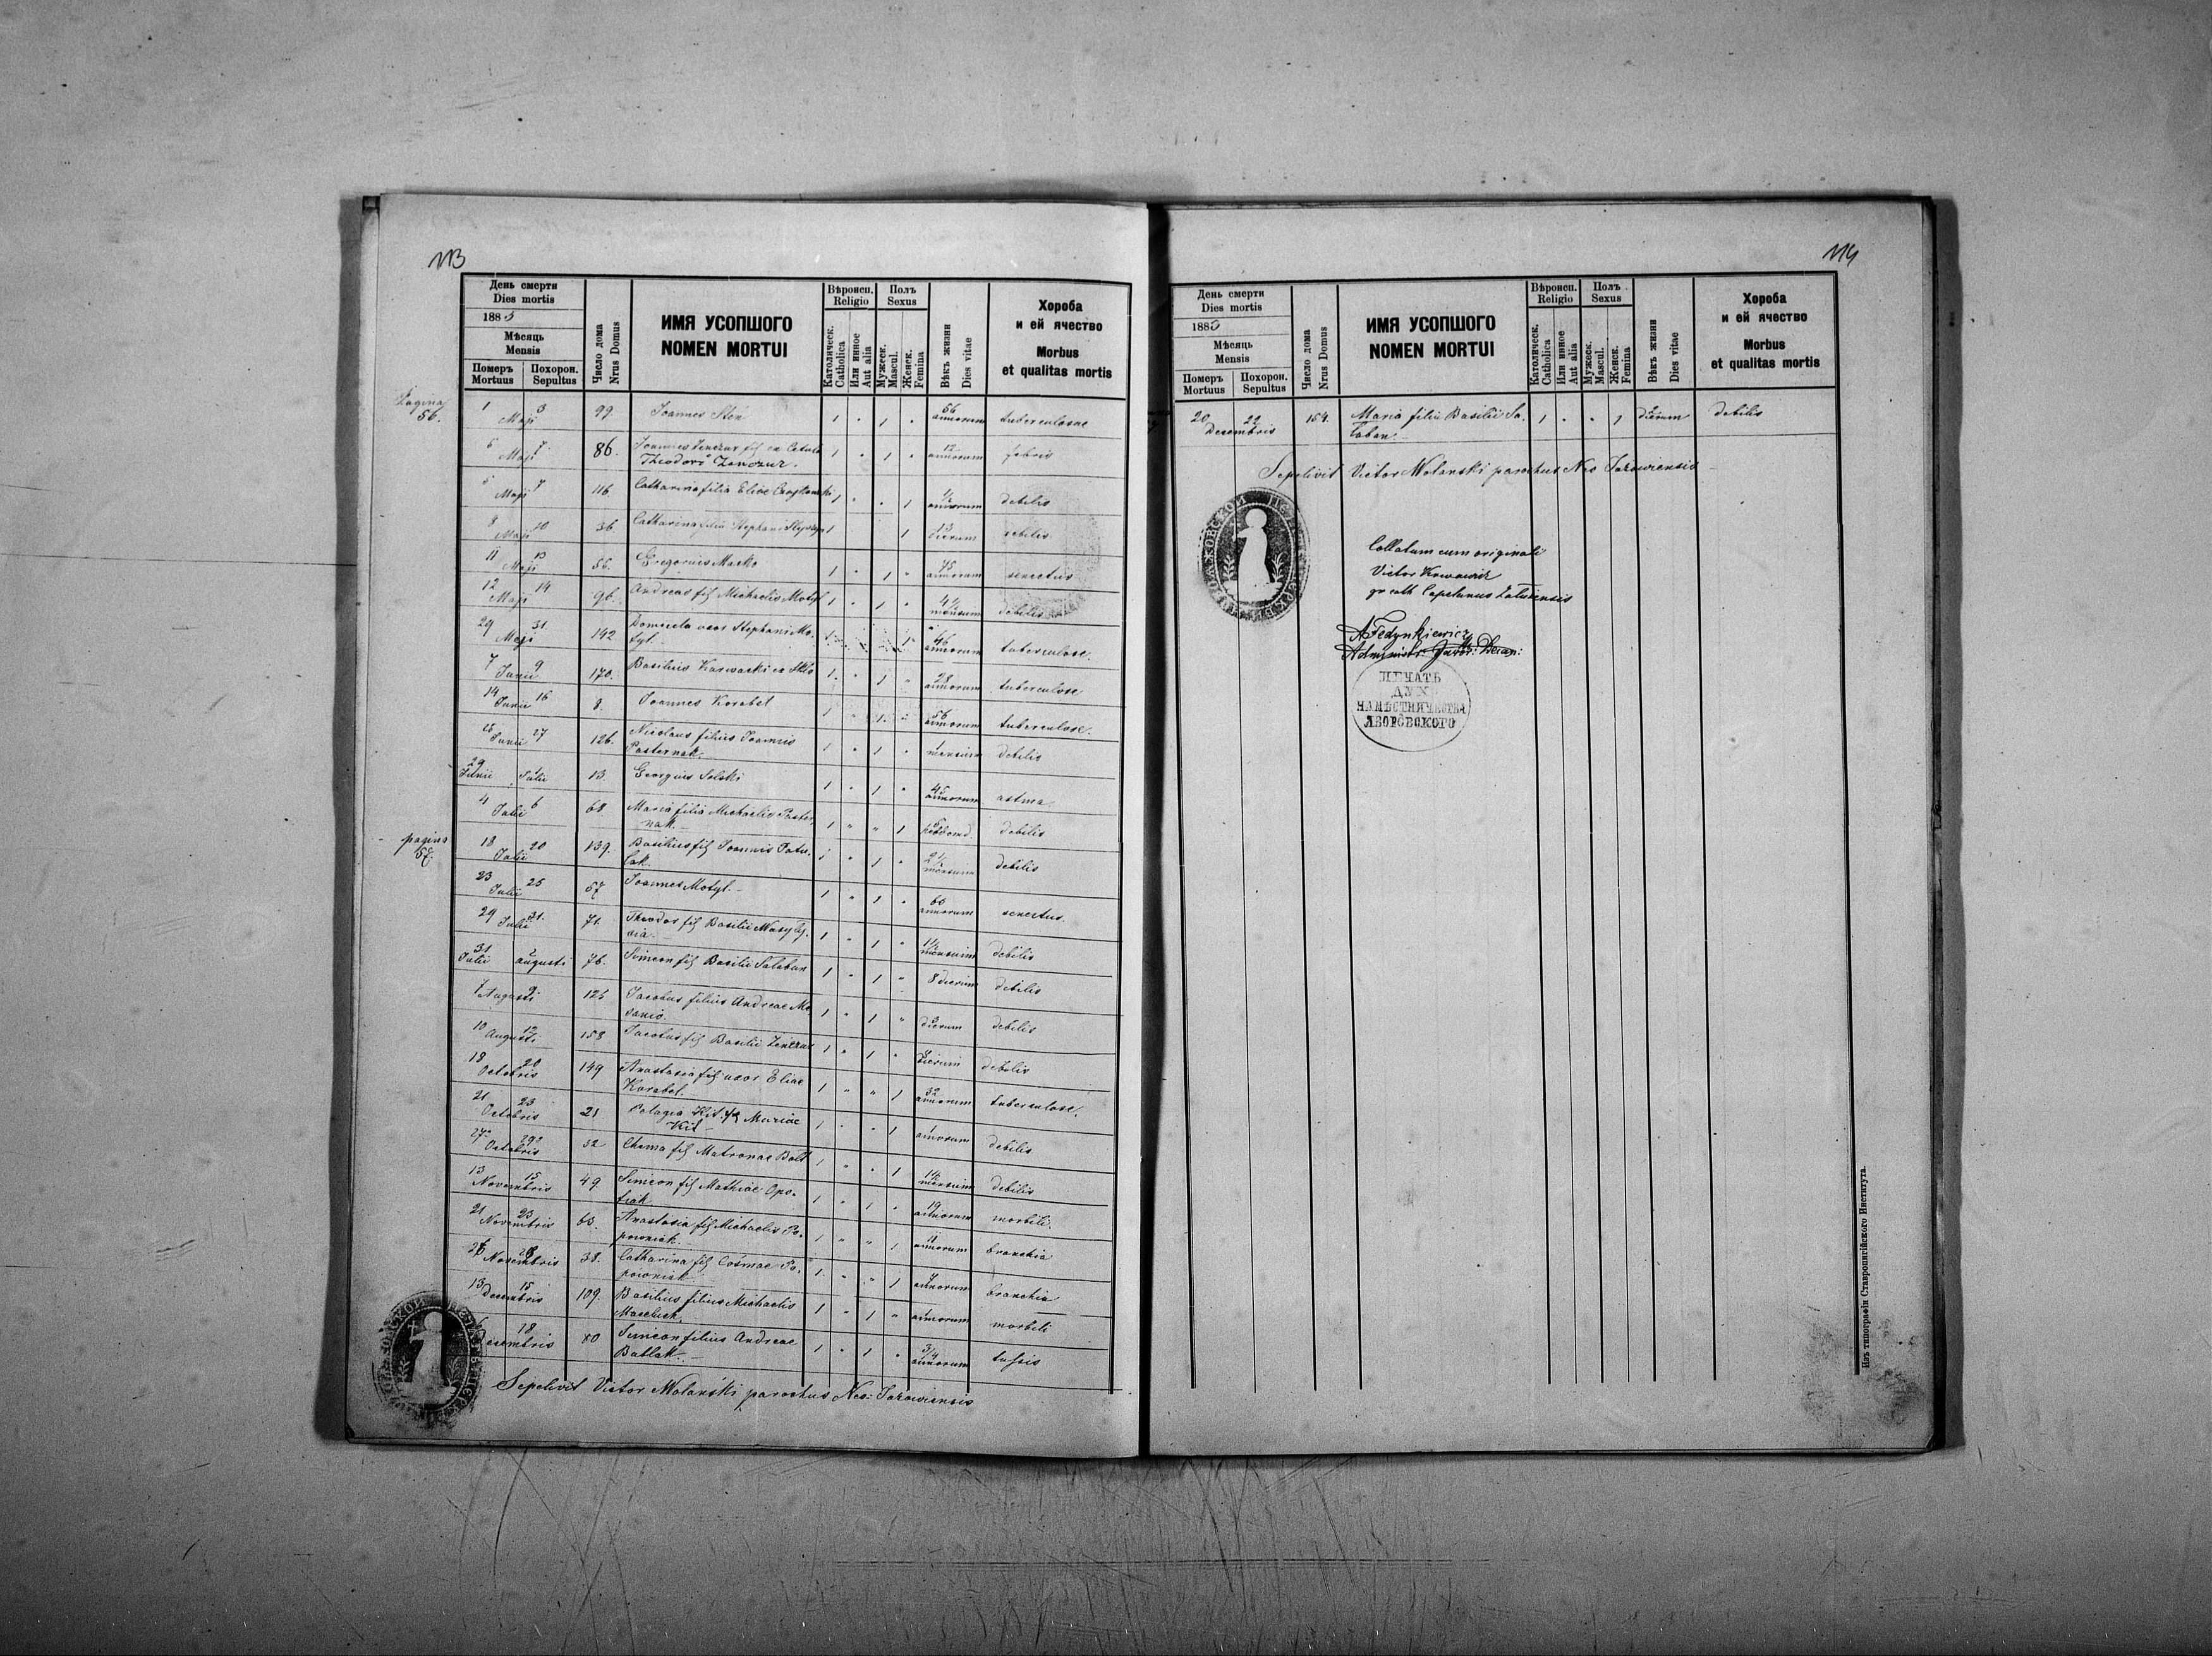 113
День смерти
Dies mortis
1885
Мѣсяць
Mensis
Померъ
Mortuus
Похорон.
Sepultus
Число дома
Nrus Domus
ИМЯ УСОПШОГО
NOMEN MORTUI
Вѣроисп.
Religio
Католическ.
Catholica
Или инное
Aut alia
Полъ
Sexus
Мужеск.
Mascul.
Женск.
Femina
Вѣкъ жизни
Dies vitae
Хороба
и ей ячество
Morbus
et qualitas mortis
Pagina
56.
1 3 Maji 99 Joannes Stoń 1 1 56 annorum tuberculosae
5 7 Maji 86. Joannes Zenczur fil
Theodori Zenczur 1 1 12 annorum febris
5 7 Maji 116 Catharina filia Eliae 1 1 1/2 annorum debilis
8 10 Maji 36 Catharina filia Stephani 1 1 13 dierum debilis
11 13 Maji 56. Gregorius Masko 1 1 75 annorum senectus
12 14 Maji 96. Andreas fil Michaelis Motyl 1 1 4 1/2 mensum debilis
29 31 Maji 142 uxor Stephani Mo-
tyl 1 1 46 annorum tuberculose.
7 9 Junii 170. Basilius Karwacki ex Sklo 1 1 28 annorum tuberculose
14 16 Junii 8. Joannes Korabel 1 1 56 annorum tuberculose.
25 27 Junii 126. Nicolaus filius Joannis
Pasternak. 1 1 mensium debilis
29 Junii 1 Julii 13 Georgius Solski 1 1 45 annorum astma.
4 6 Julii 68 Maria filia Michaelis Paster
nak. 1 1 hebdomd. debilis
pagina
57.
18 20 Julii 139. Basilius fil Joannis Patu-
lak. 1 1 2 1/2 mensium debilis
23 25 Julii 57 Joannes Motyl. 1 1 60 annorum senectus.
29 31. Julii 71. Theodor fil Basilii 1 1 1 1/2 mensium debilis
31 Julii augusti 76. Simeon fil Basilii Salaban 1 1 8 dierum debilis
7 9 Augusti 126 Jacobus filius Andreae 1 1 dierum debilis
10 12 Augusti 158 Jacobus fil Basilii Zenczur 1 1 dierum debilis
18 20 Octobris 149 Anastasia fil uxor Eliae
Korabel. 1 1 32 annorum tuberculose.
21 23 Octobris 21 Pelagia Kit. fil Mariae
Kit 1 1 annorum debilis
27 29 Octobris 32 Chema fil Matronae 1 1 1 1/2 mensium debilis
13 15 Novembris 49. Simeon fil Mathiae Opo-
1 1 19 annorum morbili.
21 23 Novembris 63. Anastasia fil Michaelis Po-
powniak 1 1 11 annorum branchia
26 28 Novembris 38. Catharina fil Cosmae Po-
powniak 1 1 annorum branchia
13 15 Decembris 109. Basilius filius Michaelis
1 1 annorum morbili
18 Decembris 80 Simeon filius Andreae
Bablak. 1 1 3/4 annorum tussis
Sepelivit Victor Wolanski parochus Neo-Jazowiensis
114
День смерти
Dies mortis
1885
Мѣсяць
Mensis
Померъ
Mortuus
Похорон.
Sepultus
Число дома
Nrus Domus
ИМЯ УСОПШОГО
NOMEN MORTUI
Вѣроисп.
Religio
Католическ.
Catholica
Или инное
Aut alia
Полъ
Sexus
Мужеск.
Mascul.
Женск.
Femina
Вѣкъ жизни
Dies vitae
Хороба
и ей ячество
Morbus
et qualitas mortis
20 22 Decembris 154. Maria filia Basilii Sa-
laban 1 1 dierum debilis
Sepelivit Victor Wolanski parochus Neo Jazowiensis
Collatum cum originali
Victor
gr cath Capelanus
A Fedynkiewicz
ПЕЧАТЬ
ДУХ
НАМѢСТНИЧЕСТВА
ЯВОРОВСКОГО
Изъ типографіи Ставропигійского Института.